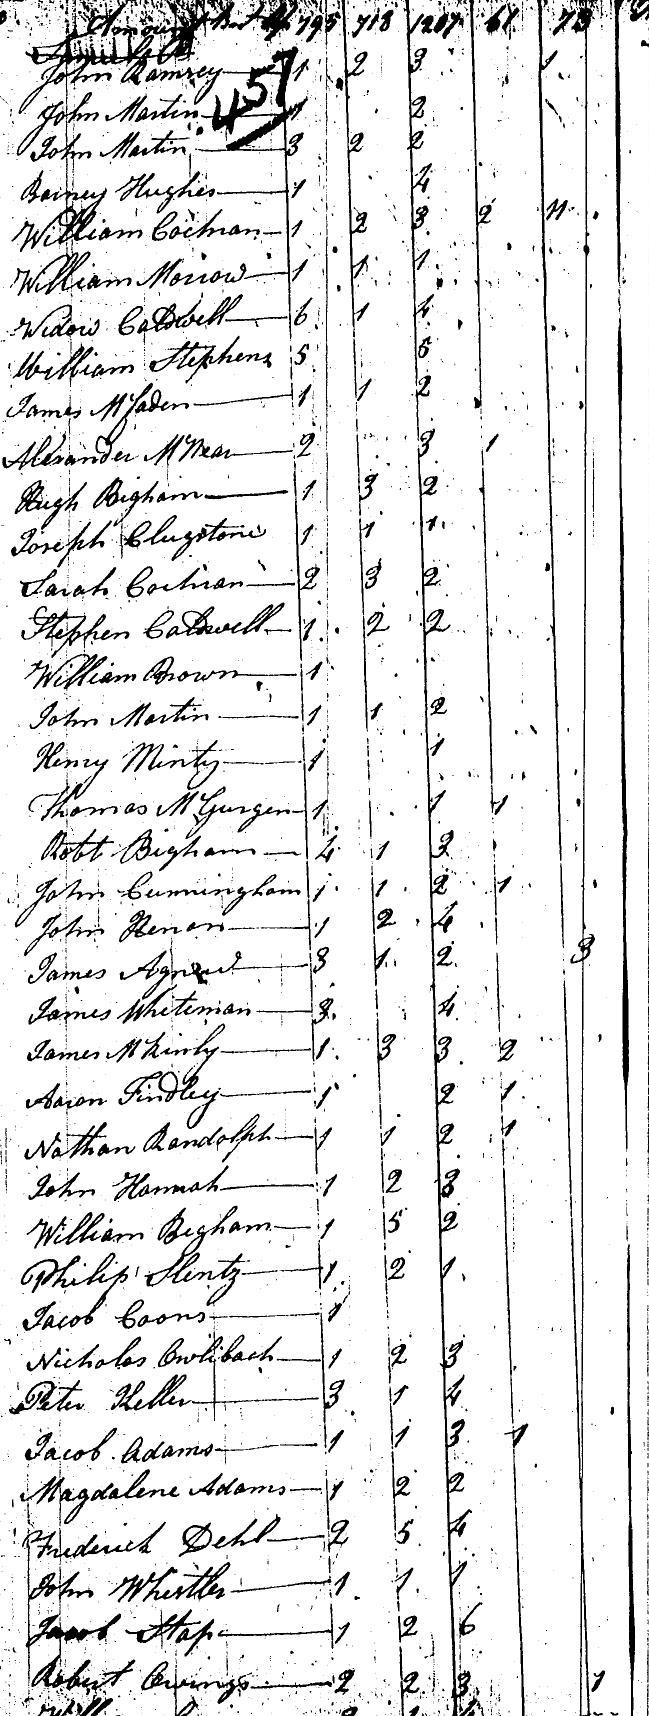 Amount Bot Up 795 718 1207 61 73
John Ramsey 1 2 3 1
457
John Martin 1 2
John Martin 3 2 2
Barney Hughes 1 4
William Cochran 1 2 3 2 11
William Morrow 1 1 1
Widow Caldwell 6 1 4
William Stephens 5 5
James McFaden 1 1 2
Alexander McNear 2 3 1
Hugh Bigham 1 3 2
Joseph Clugstone 1 1 1
Sarah Cochran 2 3 2
Stephen Caldwell 1 2 2
William Brown 1
John Martin 1 1 2
Henry Minty 1 1
Thomas McGurgen 1 1 1
Robt Bigham 4 1 3
John Cunningham 1 1 2 1
John Kenan 1 2 4
James Agnew 3 1 2 3
James Whiteman 3 4
James McKinly 1 3 3 2
Aaron Findley 1 2 1
Nathan Randolph 1 1 2 1
John Hannah 1 2 3
William Bigham 1 5 2
Philip Slentz 1 2 1
Jacob Coons 1
Nicholas Owlibach 1 2 3
Peter Keller 3 1 4
Jacob Adams 1 1 3 1
Magdalene Adams 1 2 2
Frederick Dehl 2 5 4
John Whistler 1 1 1
Jacob Stap 1 2 6
Robert Owings 2 2 3 1